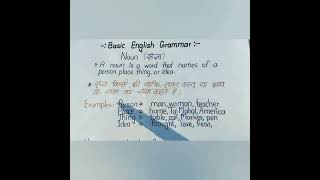 -: Basic English Grammar :-
Noun (संज्ञा)
* A noun is a word that names of a
person, place, thing, or idea.
* संज्ञा किसी भी व्यक्ति, स्थान, वस्तु या भाव
के नाम को संज्ञा कहते हैं।
Examples: Person → man, woman, teacher
Place → home, Taj Mahal, America
Thing → table, car, Marker, pen
Idea → thought, love, fear,